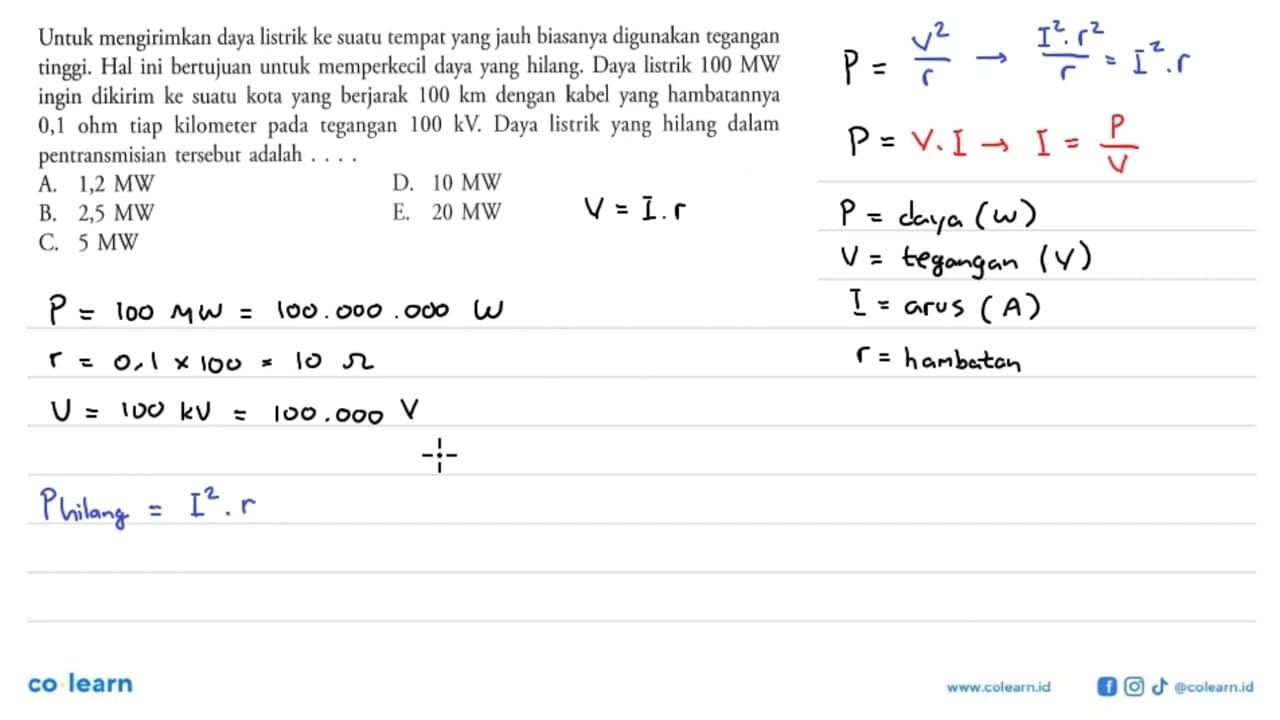 Untuk mengirimkan daya listrik ke suatu tempat yang jauh biasanya digunakan tegangan
tinggi. Hal ini bertujuan untuk memperkecil daya yang hilang. Daya listrik 100 MW
ingin dikirim ke suatu kota yang berjarak 100 km dengan kabel yang hambatannya
0,1 ohm tiap kilometer pada tegangan 100 kV. Daya listrik yang hilang dalam
pentransmisian tersebut adalah . . . .
A. 1,2 MW
B. 2,5 MW
C. 5 MW
D. 10 MW
E. 20 MW
V = I.r
P = V²/r → I².r²/r = I².r
P = V.I → I = P/V
P = daya (W)
V = tegangan (V)
I = arus (A)
r = hambatan
P = 100 MW = 100.000.000 W
r = 0,1 × 100 = 10 Ω
V = 100 kV = 100.000 V
Philang = I².r
co learn
www.colearn.id
@colearn.id